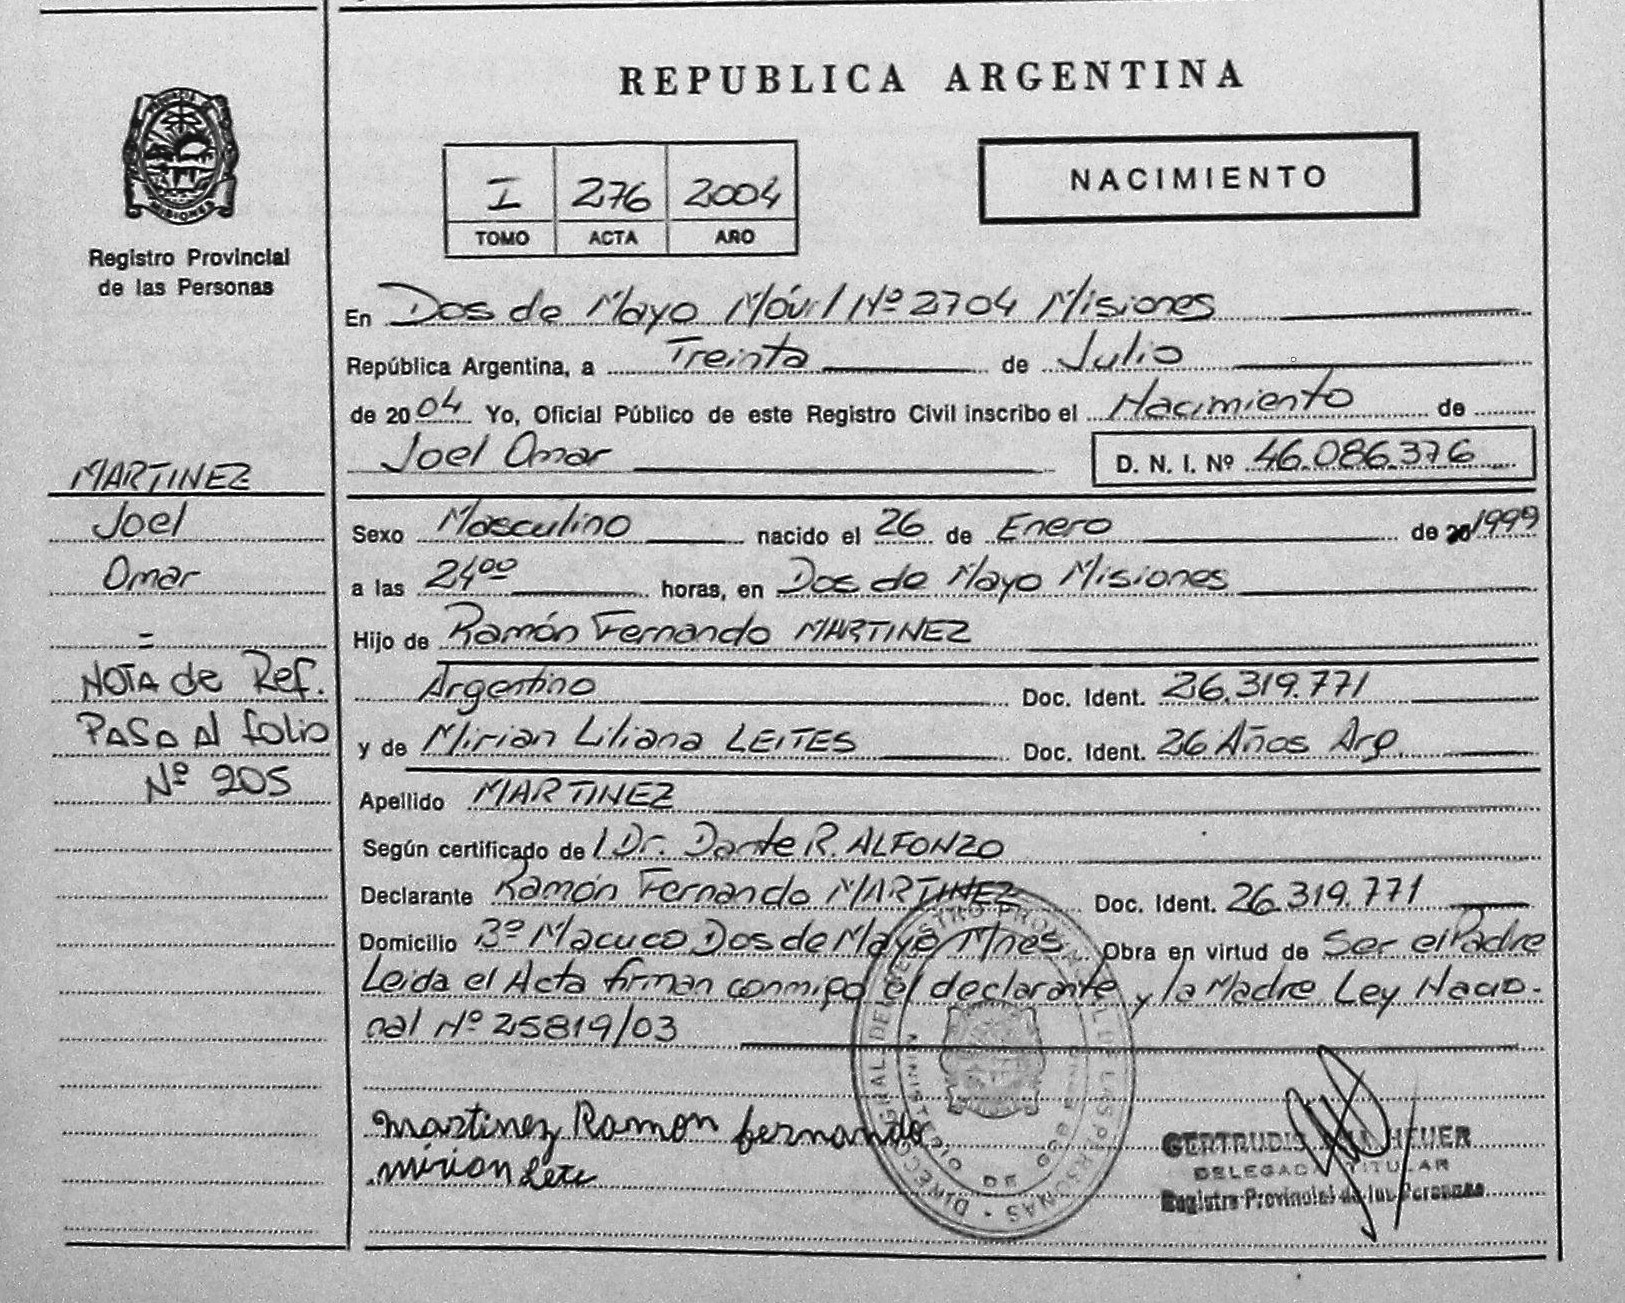 REPUBLICA ARGENTINA
PROVINCIA DE
MISIONES
Registro Provincial
de las Personas
I 276 2004
TOMO ACTA AÑO
NACIMIENTO
En Dos de Mayo Móvil Nº 2704 Misiones
República Argentina, a Treinta de Julio
de 2004 Yo, Oficial Público de este Registro Civil inscribo el Nacimiento de
Joel Omar D. N. I. Nº 46.086.376
MARTINEZ
Joel
Omar
=
NOTA de Ref.
PASA Al folio
Nº 205
Sexo Masculino nacido el 26 de Enero de 20 1999
a las 24⁰⁰ horas, en Dos de Mayo Misiones
Hijo de Ramón Fernando MARTINEZ
Argentino Doc. Ident. 26.319.771
y de Mirian Liliana LEITES Doc. Ident. 26 Años Arg.
Apellido MARTINEZ
Según certificado de l Dr. Dante R. ALFONZO
Declarante Ramón Fernando MARTINEZ Doc. Ident. 26.319.771
Domicilio Bº Macuco Dos de Mayo Mnes Obra en virtud de Ser el Padre
Leida el Acta firman conmigo el declarante y la Madre Ley Nacio-
nal Nº 25819/03
Martinez Ramon fernando
mirian Lete
DIRECCION GRAL. DEL REGISTRO PROVINCIAL DE LAS PERSONAS
MINISTERIO DE
GERTRUDIS HEUER
DELEGADA TITULAR
Registro Provincial de las Personas